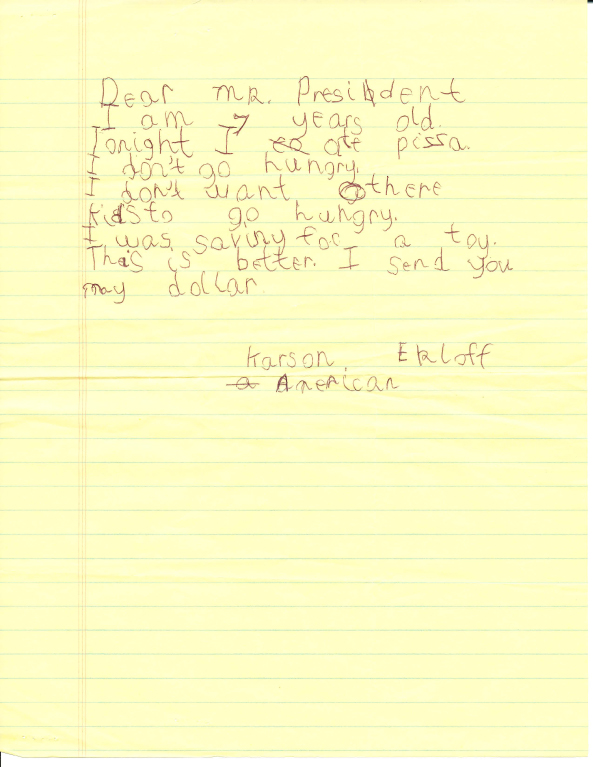 Dear MR. President
I am 7 years old.
Tonight I ate pizza.
I don't go hungry.
I don't want othere
kids to go hungry.
I was saving for a toy.
This is better. I send you
my dollar.
Karson Ekloff
American